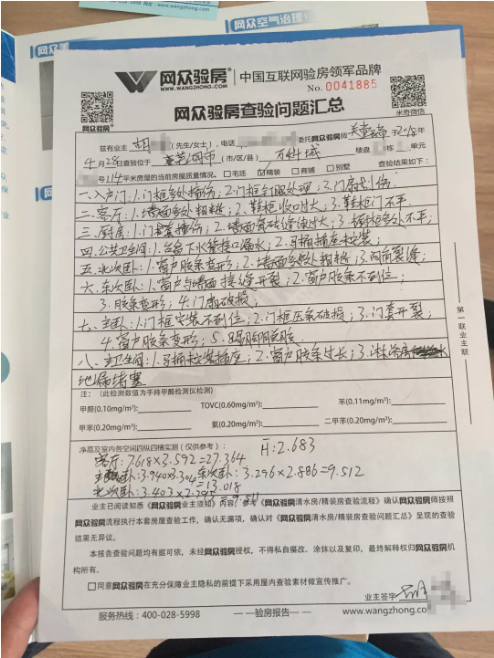 网众验房®
WWW.WANGZHONG.COM
中国互联网验房领军品牌
No. 0041885
网众验房®
网众验房查验问题汇总
米奇微信
兹有业主 胡 (先生/女士),电话 委托网众验房
4月28日查验位于 芜湖市(市/区/县) 万科城 楼盘 栋 单元
号114平米房屋的当前房屋质量情况。 毛坯 精装 商铺 别墅 查验结果如下:
一.入户门:1.门框多处撞伤;2.门框
二.客厅:1.墙面多处粗糙;2.鞋柜收口大;3.鞋柜门不平
三.厨房:1.门套撞伤;2.
四.公共卫生间:1.台盆下水管接口漏水;2.马桶插座
五.北次卧:1.窗户胶条变形;2.墙面多处粗糙;3.
六.东次卧:1.窗户与墙面接缝开裂;2.窗户胶条不到位;
3.胶条变形;4.门底破损;
七.主卧:1.门框安装不到位;2.门框压条破损;3.门套开裂
4.窗户胶条变形;5.踢脚脱胶
八.主卫生间:1.马桶 插座;2.窗户胶条过长;3.淋浴房
地漏堵塞
注:(此检测数值为手持甲醛检测仪检测)
甲醛(0.10mg/m³): TOVC(0.60mg/m³): 苯(0.11mg/m³):
甲苯(0.20mg/m³): 氨(0.20mg/m³): 二甲苯(0.20mg/m³):
净高及室内各空间四纵四横实测(仅供参考):
客厅:7.618×3.592=27.364 H:2.683
主卧:3.940×3.304=13.018 东次卧:3.296×2.886=9.512
北次卧:3.403×2.
业主已阅读知悉《网众验房业主须知》内容,参考《网众验房清水房/精装房查验流程》确认网众验房师按照
网众验房流程执行本套房屋查验工作,确认无漏项,确认对《网众验房清水房/精装房查验问题汇总》呈现的查验
结果无异议。
本报告查验问题均有据可依,未经网众验房授权,不得私自摄改、涂抹以及复印,最终解释权归网众验房机
构所有。
同意网众验房在充分保障业主隐私的前提下采用屋内查验素材做宣传推广。
业主签字
服务热线:400-028-5998 —验房报告— www.wangzhong.co
第一联业主联